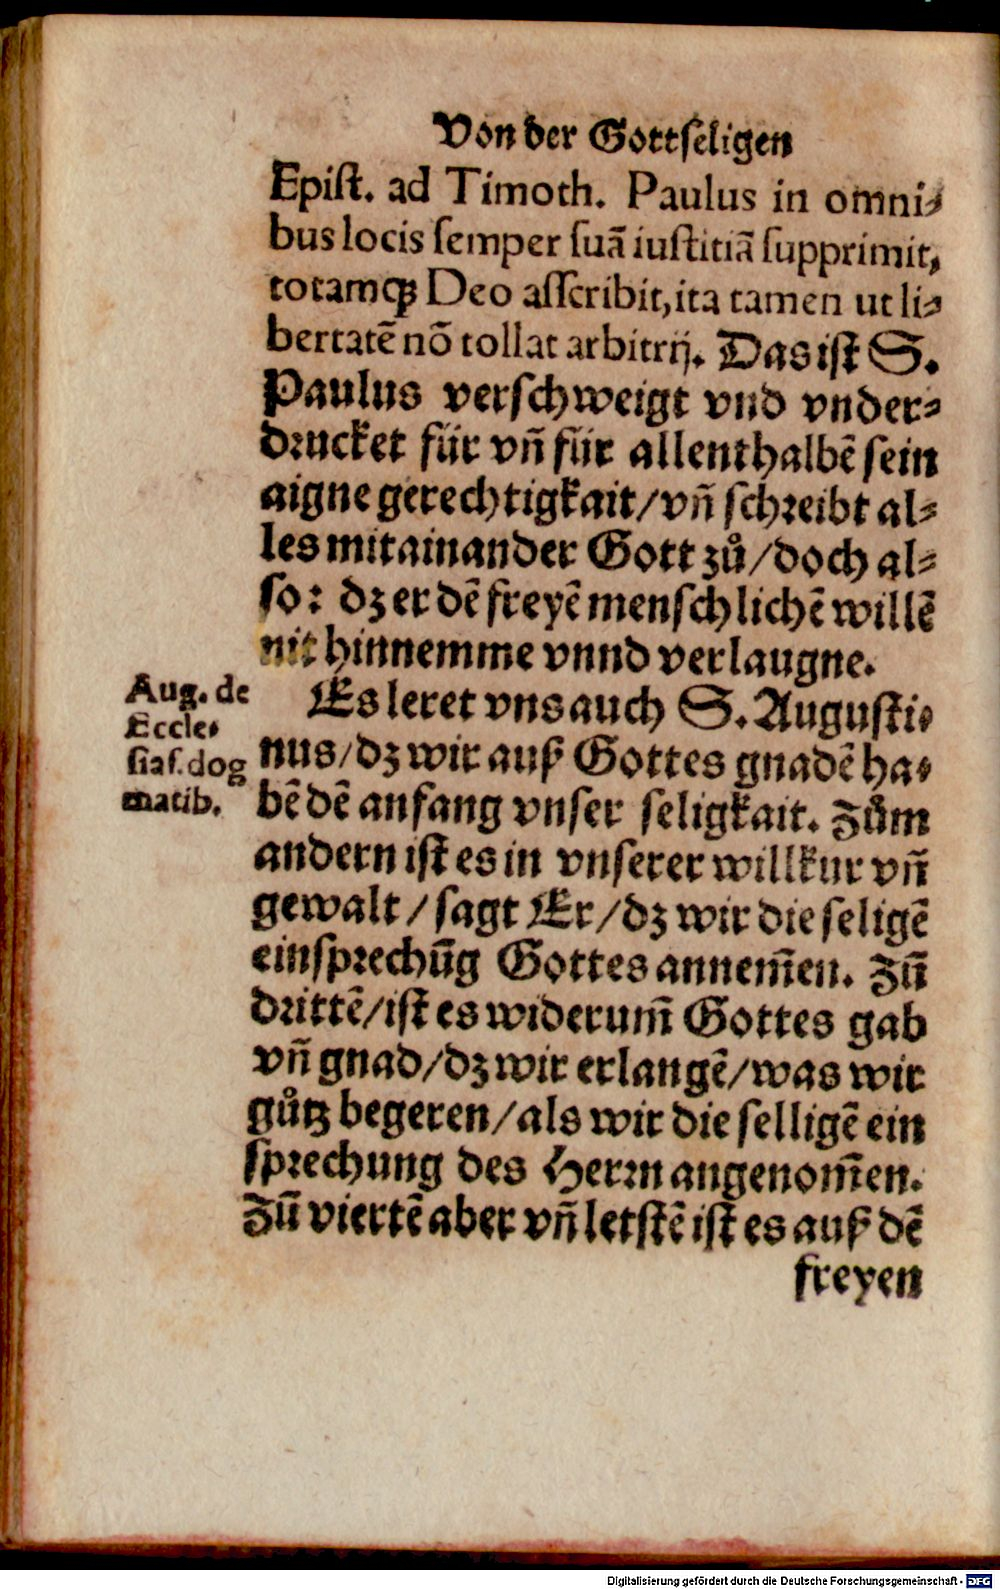 Von der Gottseligen
Epiſt. ad Timoth. Paulus in omni⸗
bus locis ſemper ſuã iuſtitiã ſupprimit,
totamq́ꝫ Deo aſſcribit, ita tamen ut li⸗
bertatẽ nõ tollat arbitrij. Das iſt S.
Paulus verſchweigt vnd vnder⸗
drucket für vñ für allenthalbẽ ſein
aigne gerechtigkait/ vñ ſchreibt al⸗
les mitainander Gott zů/ doch al⸗
ſo: dz er dẽ freyẽ menſchlichẽ willẽ
nit hinnemme vnnd verlaugne.
Es leret vns auch S. Auguſti⸗
nus/ dz wir auß Gottes gnadẽ ha⸗
bẽ dẽ anfang vnſer ſeligkait. Zům
andern iſt es in vnſerer willkur vñ
gewalt/ ſagt Er/ dz wir die ſeligẽ
einſprechũg Gottes annem̃en. Zũ
drittẽ/ iſt es widerum̃ Gottes gab
vñ gnad/ dz wir erlangẽ/ was wir
gůtz begeren/ als wir die ſelligẽ ein
ſprechung des Herrn angenom̃en.
Zũ viertẽ aber vñ letſtẽ iſt es auß dẽ
freyen
Aug. de
Eccle⸗
ſiaſ. dog
matib.
Digitalisierung gefördert durch die Deutsche Forschungsgemeinschaft - DFG